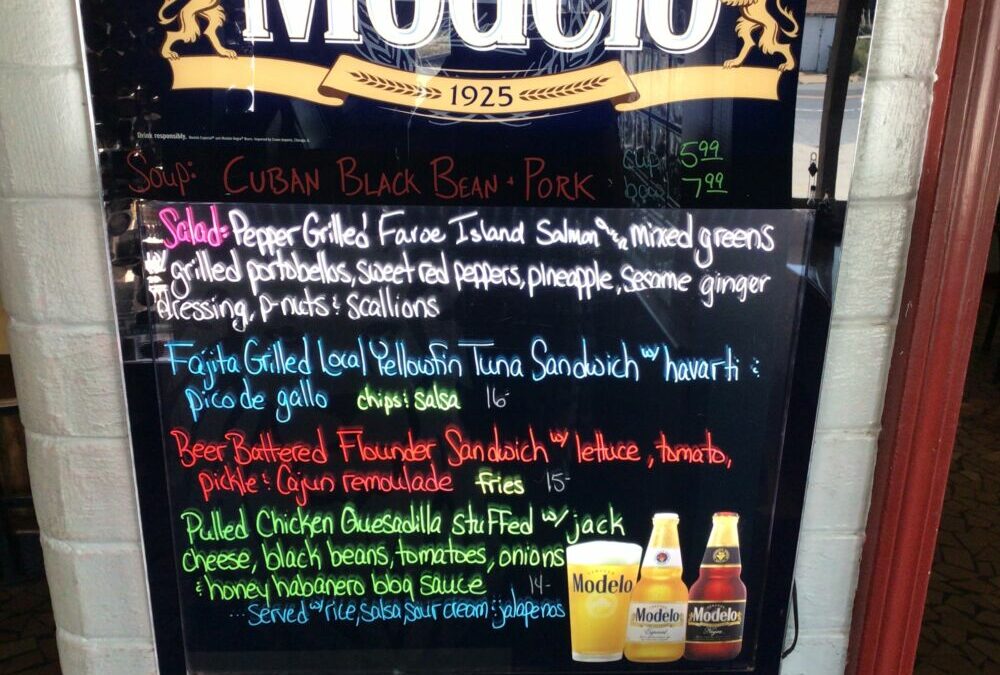 Modelo
1925
Drink responsibly.
Soup: CUBAN BLACK BEAN + PORK cup 5.99
bowl 7.99
Salad: Pepper Grilled Faroe Island Salmon over mixed greens
w/ grilled portobellos, sweet red peppers, pineapple, sesame ginger
dressing, p-nuts & scallions
Fajita Grilled Local Yellowfin Tuna Sandwich w/ havarti &
pico de gallo chips & salsa 16-
Beer Battered Flounder Sandwich w/ lettuce, tomato,
pickle & Cajun remoulade fries 15-
Pulled Chicken Quesadilla stuffed w/ jack
cheese, black beans, tomatoes, onions
& honey habanero bbq sauce 14-
...served w/ rice, salsa, sour cream & jalapenos
Modelo
Modelo
Especial
Modelo
Negra